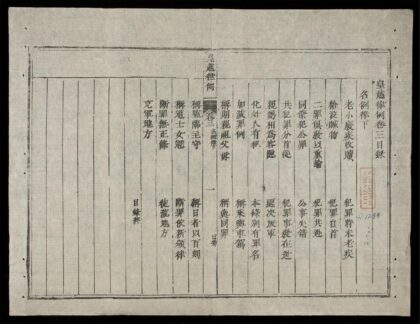 皇越律例卷三目錄
名例律下
老小廢疾收贖 犯罪時未老疾
給沒贓物 犯罪自首
二罪俱發以重論 犯罪共逃
同僚犯公罪 公事失錯
共犯罪分首從 犯罪事發在逃
親屬相爲容隱 處決叛軍
化外人有犯 本條別有罪名
加減罪例 稱乘輿車駕
皇越律例
一
稱期親祖父母 稱與同罪
稱監臨主守 稱日者以百刻
稱道士女冠 斷罪依新頒律
斷罪無正條 徒流地方
充軍地方
目錄終